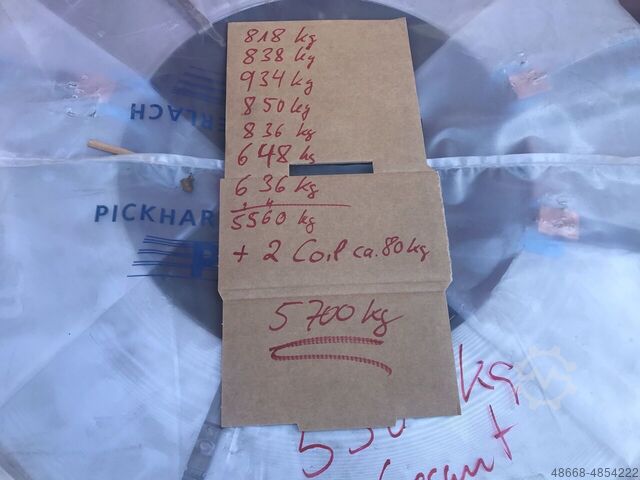 818 kg
838 kg
934 kg
850 kg
836 kg
648 kg
636 kg
5560 kg
+ 2 Coil ca. 80 kg
5700 kg
PICKHAR
kg
48668-4854222